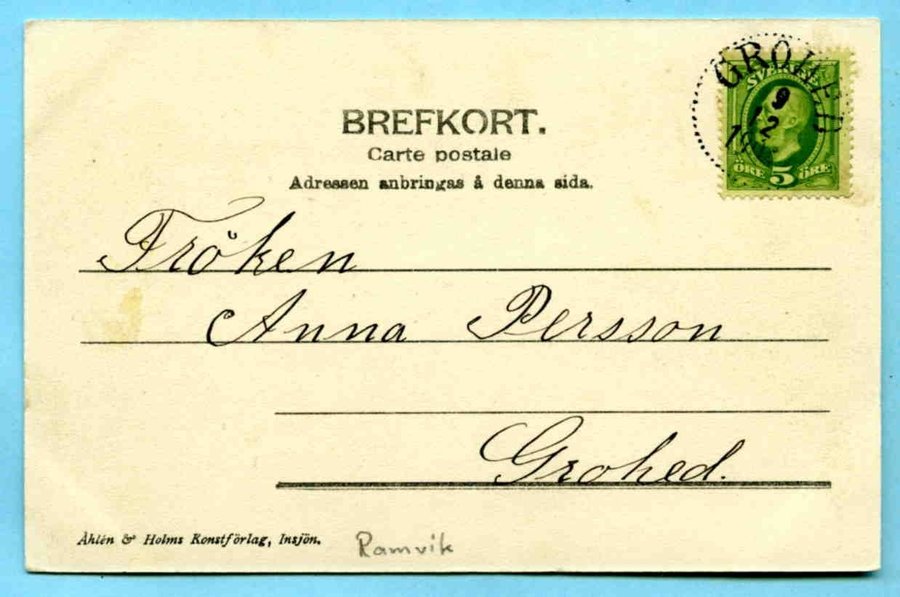 BREFKORT.
Carte postale
Adressen anbringas å denna sida.
GROHED
SVERIGE
9
12
ÖRE 5 ÖRE
Fröken
Anna Persson
Grohed.
Åhlén & Holms Konstförlag, Insjön.
Ramvik